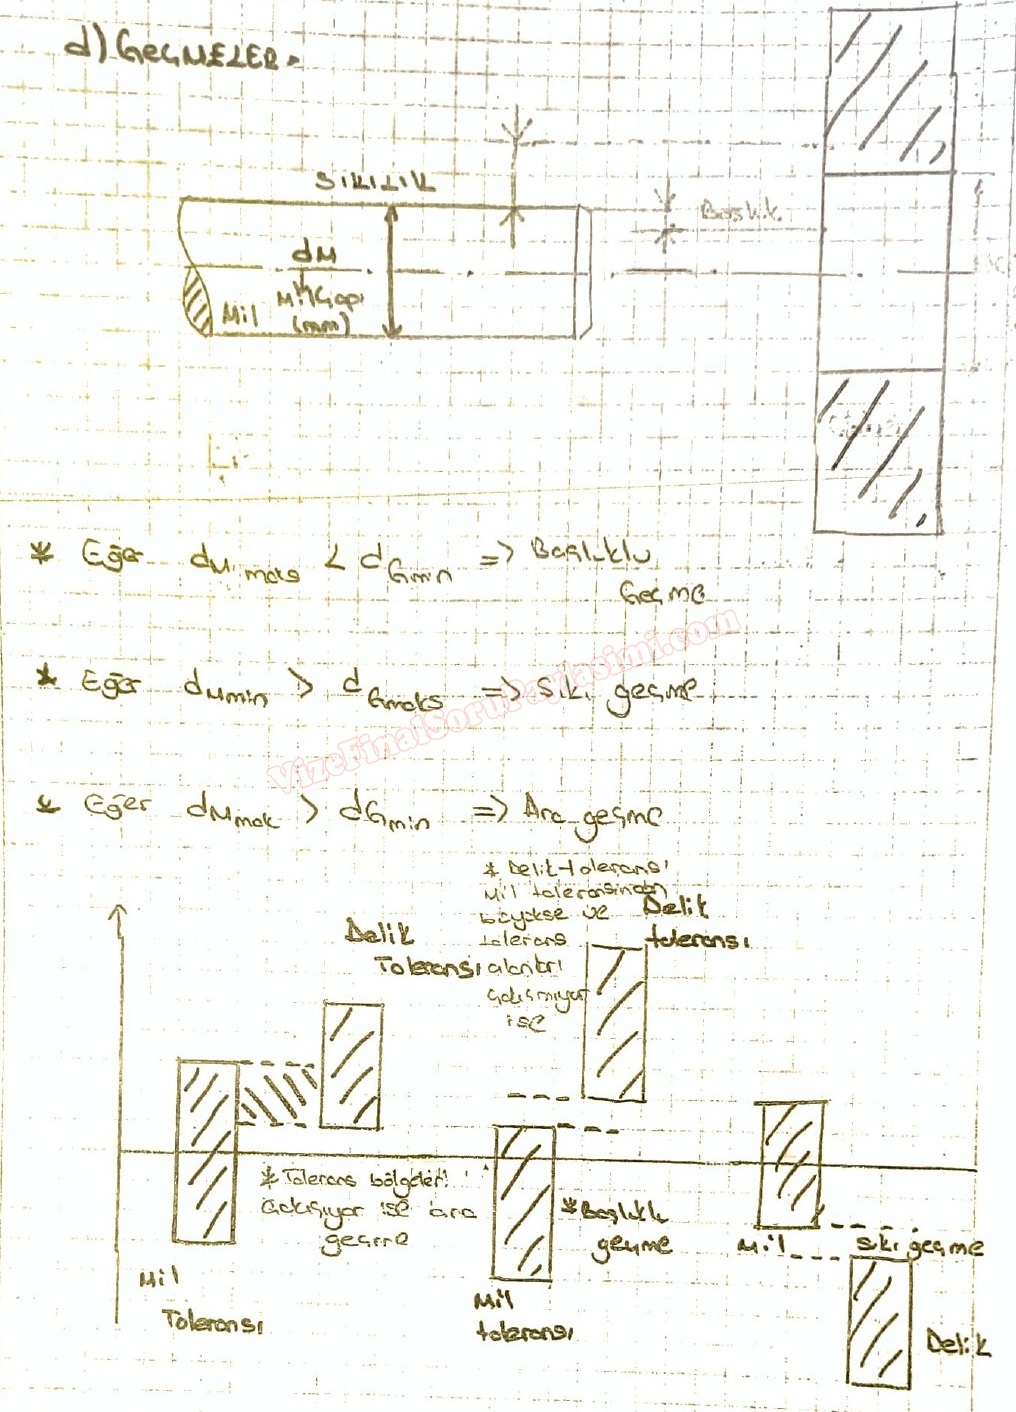 d) GEÇMELER.
SIKILIK
Boşluk
dM
Mil Çapı
(mm)
Mil
* Eğer dM maks < dGmin => Boşluklu
Geçme
* Eğer dMmin > dGmaks => sıkı geçme
* Eğer dMmak > dGmin => Ara geçme
VizeFinalSoruPaylasimi.com
* Delik toleransı
Mil toleransından
büyükse ve
tolerans
alanları
çakışmıyor
ise
Delik
Toleransı
Delik
toleransı
* Tolerans bölgeleri
çakışıyor ise ara
geçme
* Boşluklu
geçme
Mil
sıkı geçme
Mil
Toleransı
Mil
toleransı
Delik